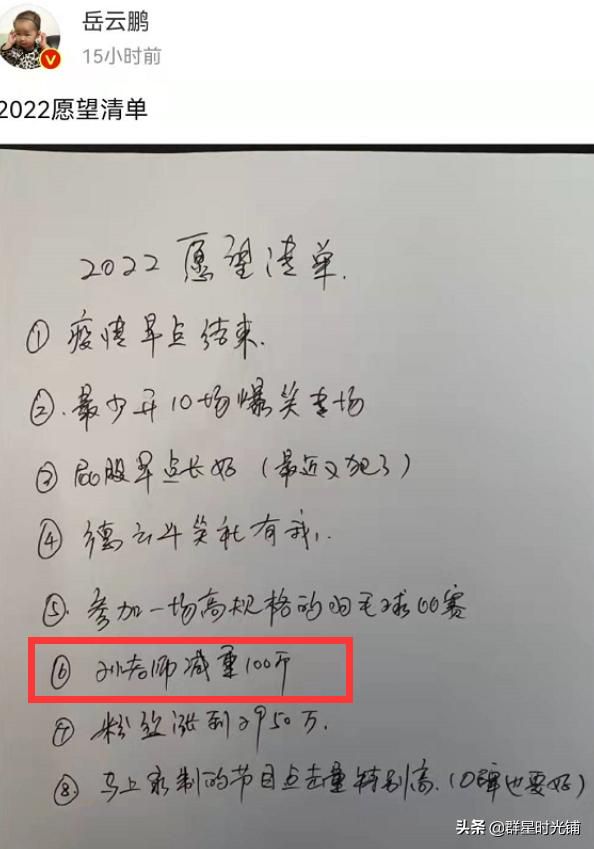 岳云鹏
15小时前
2022愿望清单
2022愿望清单.
① 疫情早点结束.
②. 最少开10场爆笑专场
③ 屁股早点长好（最近又犯了）
④ 德云斗笑社有我..
⑤. 参加一场高规格的羽毛球比赛
⑥ 孙老师减重100斤
⑦ 粉丝涨到2950万.
⑧. 马上录制的节目点击量特别高.（口碑也要好）
头条 @群星时光铺